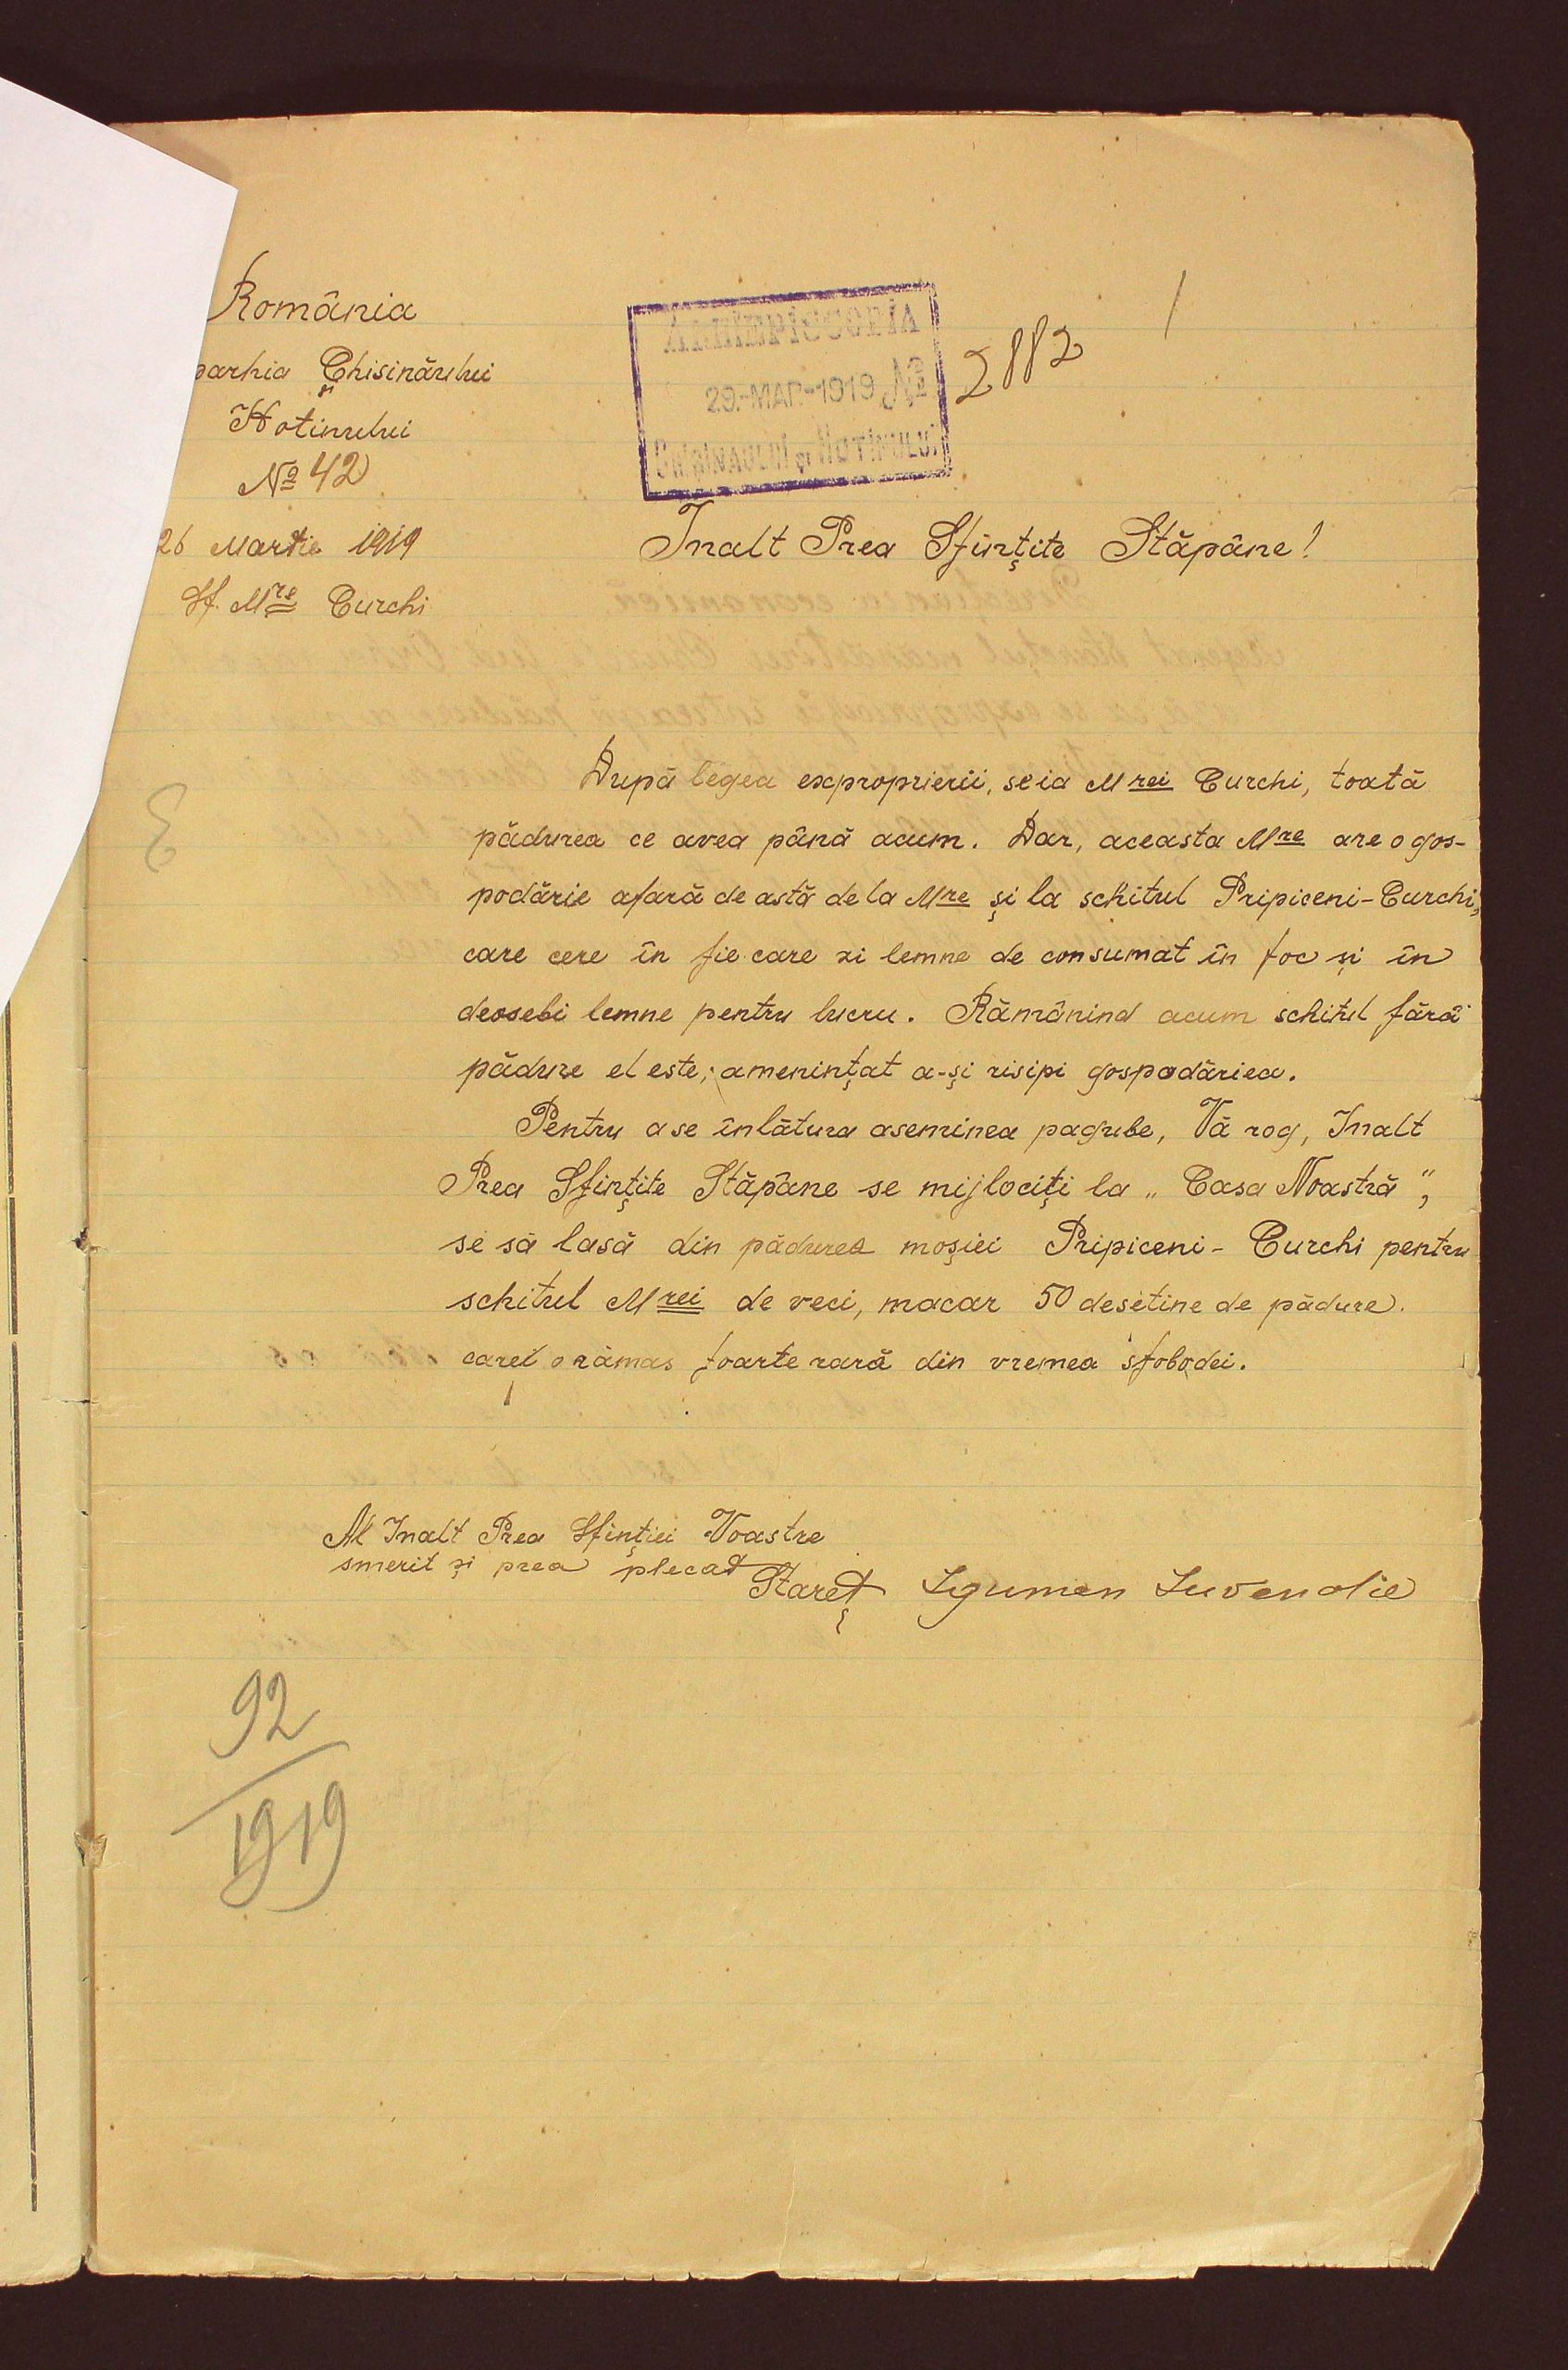 România
parhia Chisinăului
și
Hotinului
№ 42
26 Martie 1919
Sf. Mre Curchi
ARHIEPISCOPIA
29.-МАР.-1919 №
CHIȘINĂULUI și HOTINULUI
2882
1
Inalt Prea Sfințite Stăpâne!
După legea exproprierii, se ia Mrei Curchi, toată
pădurea ce avea până acum. Dar, aceasta Mre are o gos-
podărie afară de astă de la Mre și la schitul Pripiceni-Curchi,
care cere în fie care zi lemne de consumat în foc și în
deosebi lemne pentru lucru. Rămânind acum schitul fără
pădure el este, amenințat a-și risipi gospodăriea.
Pentru a se înlătura aseminea pagube, Vă rog, Inalt
Prea Sfințite Stăpâne se mijlociți la „Casa Noastră",
se să lasă din pădurea moșiei Pripiceni-Curchi pentru
schitul Mrei de veci, macar 50 desetine de pădure.
o rămas foarte rară din vremea sfobodei.
Al Inalt Prea Sfinției Voastre
smerit și prea plecat
Stareț Igumen Iuvenalie
92
1919